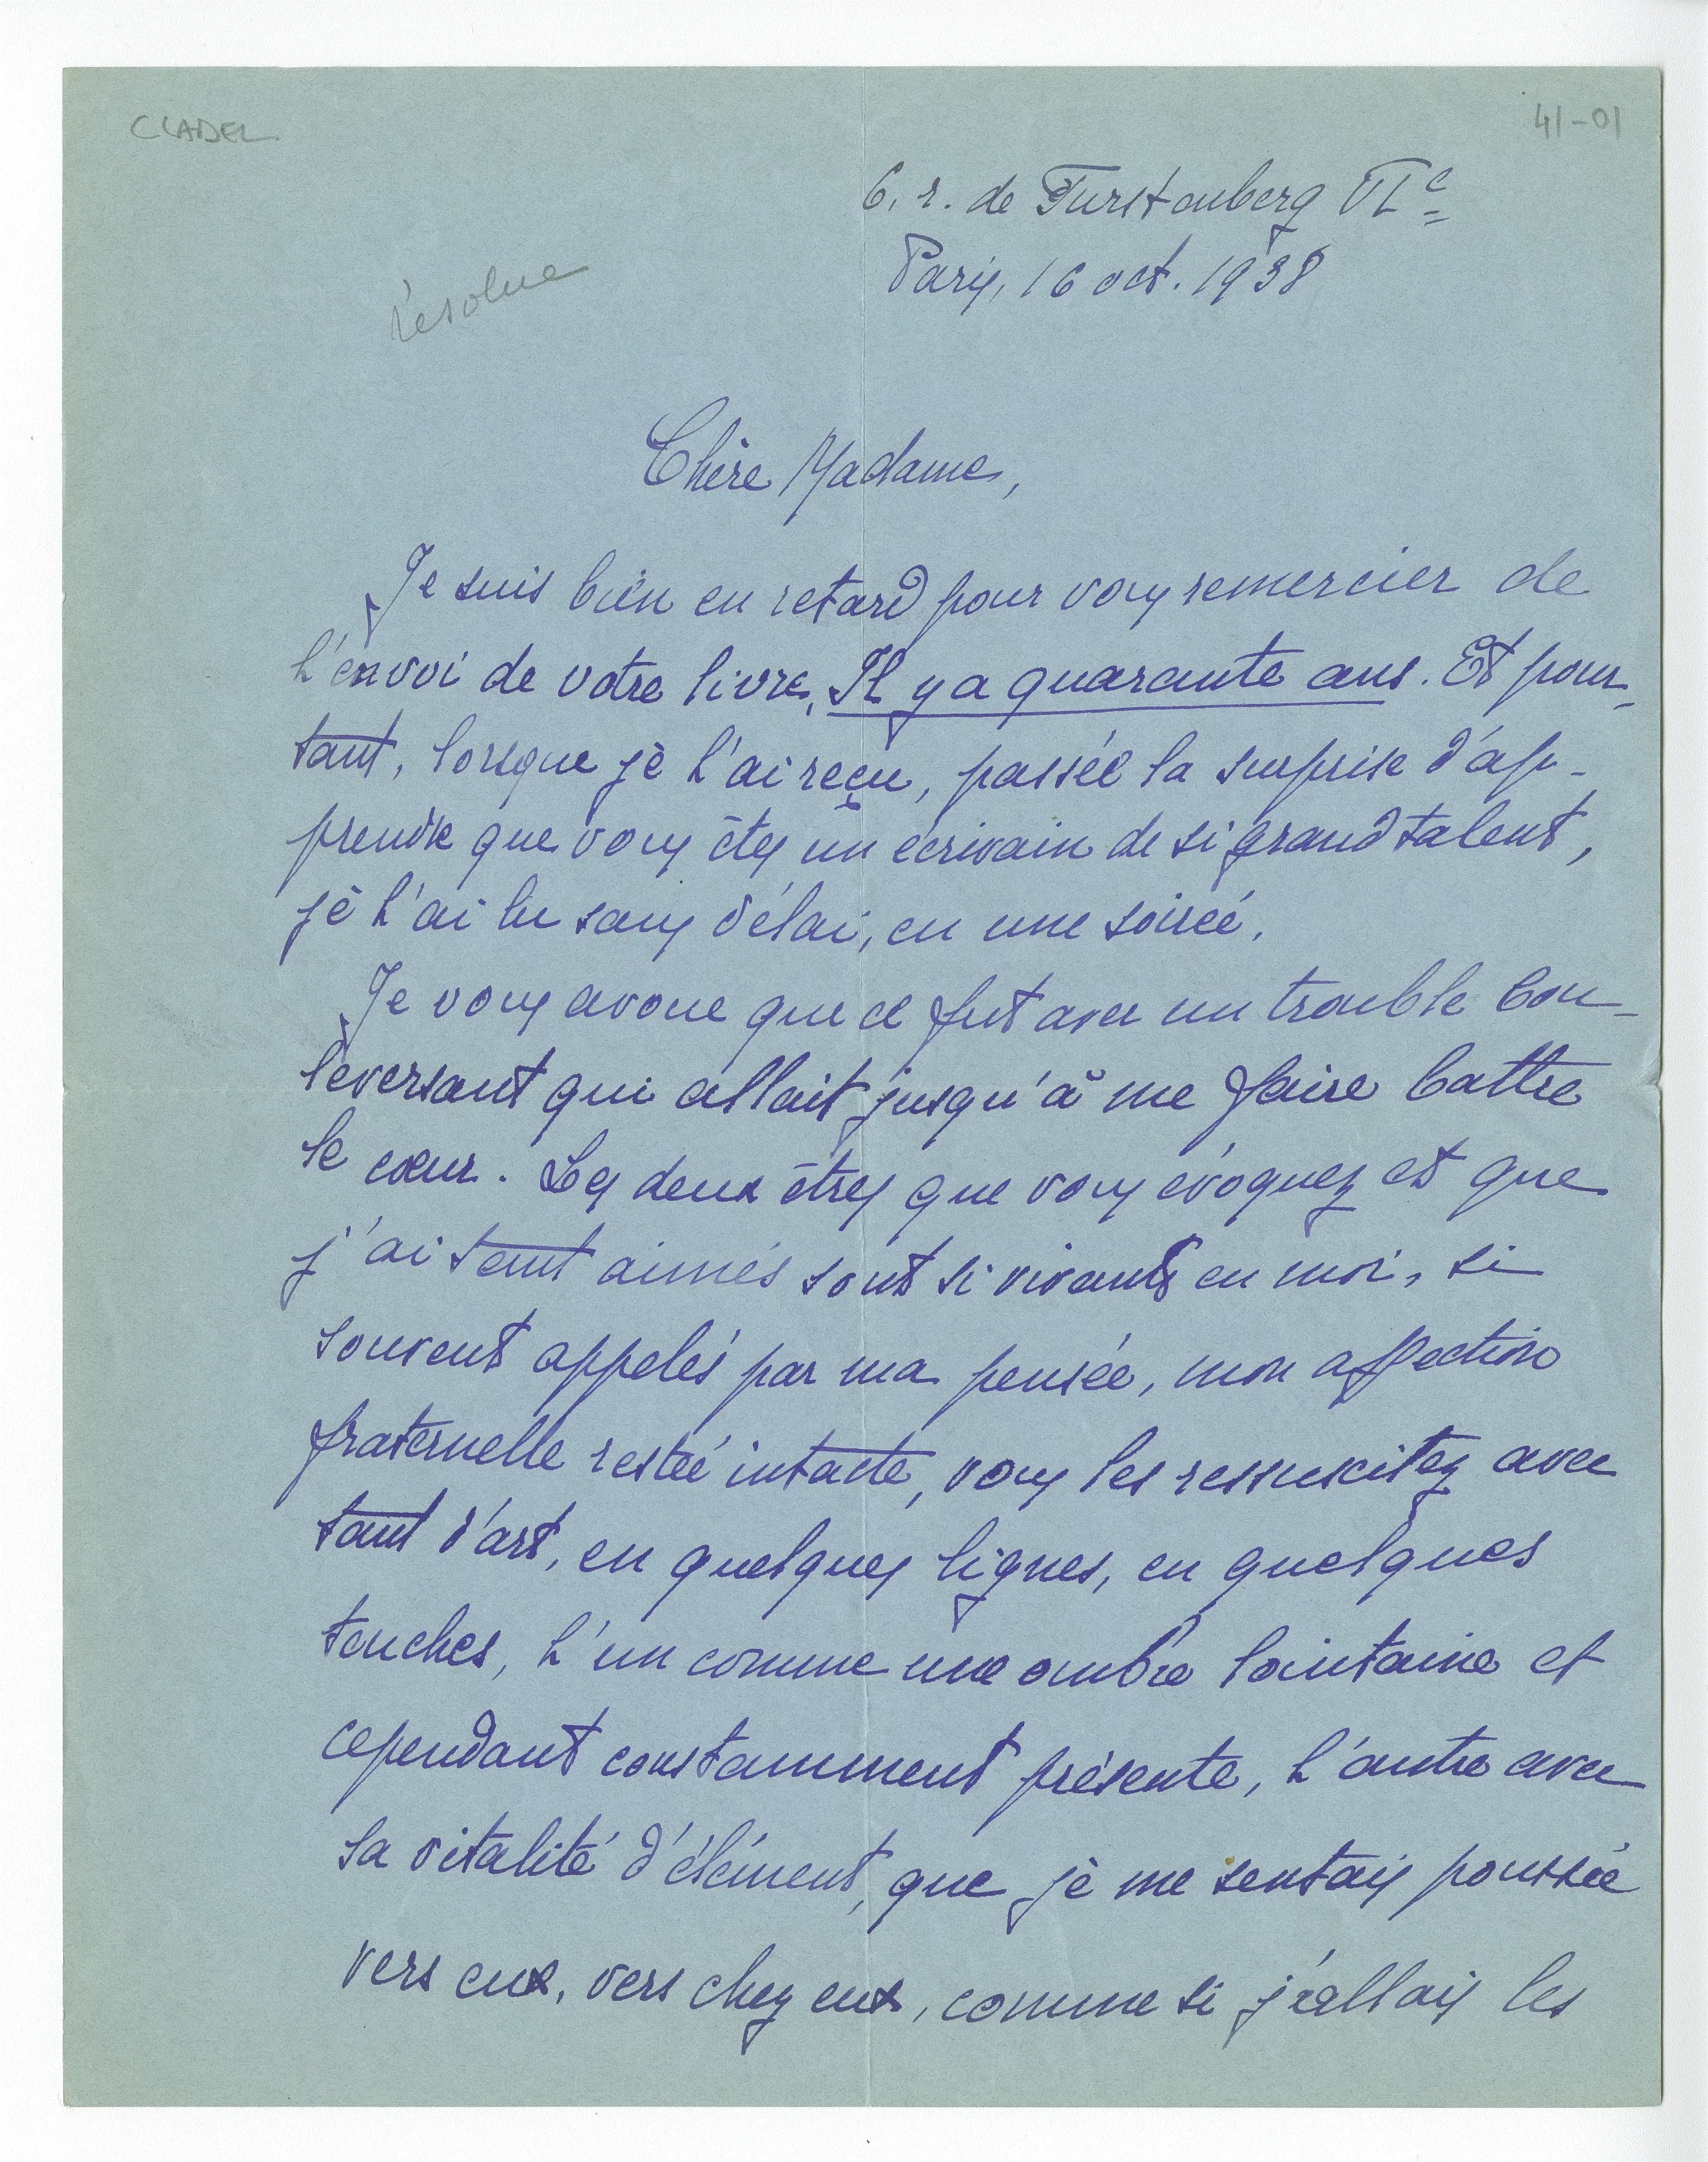 CLADEL
41-01
6, r. de Furstenberg VIe
Paris, 16 oct. 1938
résolue
Chère Madame,
Je suis bien en retard pour vous remercier de
l'envoi de votre livre, Il y a quarante ans. Et pour-
tant, lorsque je l'ai reçu, passée la surprise d'ap-
prendre que vous êtes un écrivain de si grand talent,
je l'ai lu sans délai, en une soirée.
Je vous avoue que ce fut avec un trouble bou-
leversant qui allait jusqu'à me faire battre
le cœur. Les deux êtres que vous évoquez et que
j'ai tant aimés sont si vivants en moi, si
souvent appelés par ma pensée, mon affection
fraternelle restée intacte, vous les ressuscitez avec
tant d'art, en quelques lignes, en quelques
touches, l'un comme une ombre lointaine et
cependant constamment présente, l'autre avec
sa vitalité d'élément, que je me sentais poussée
vers eux, vers chez eux, comme si j'allais les